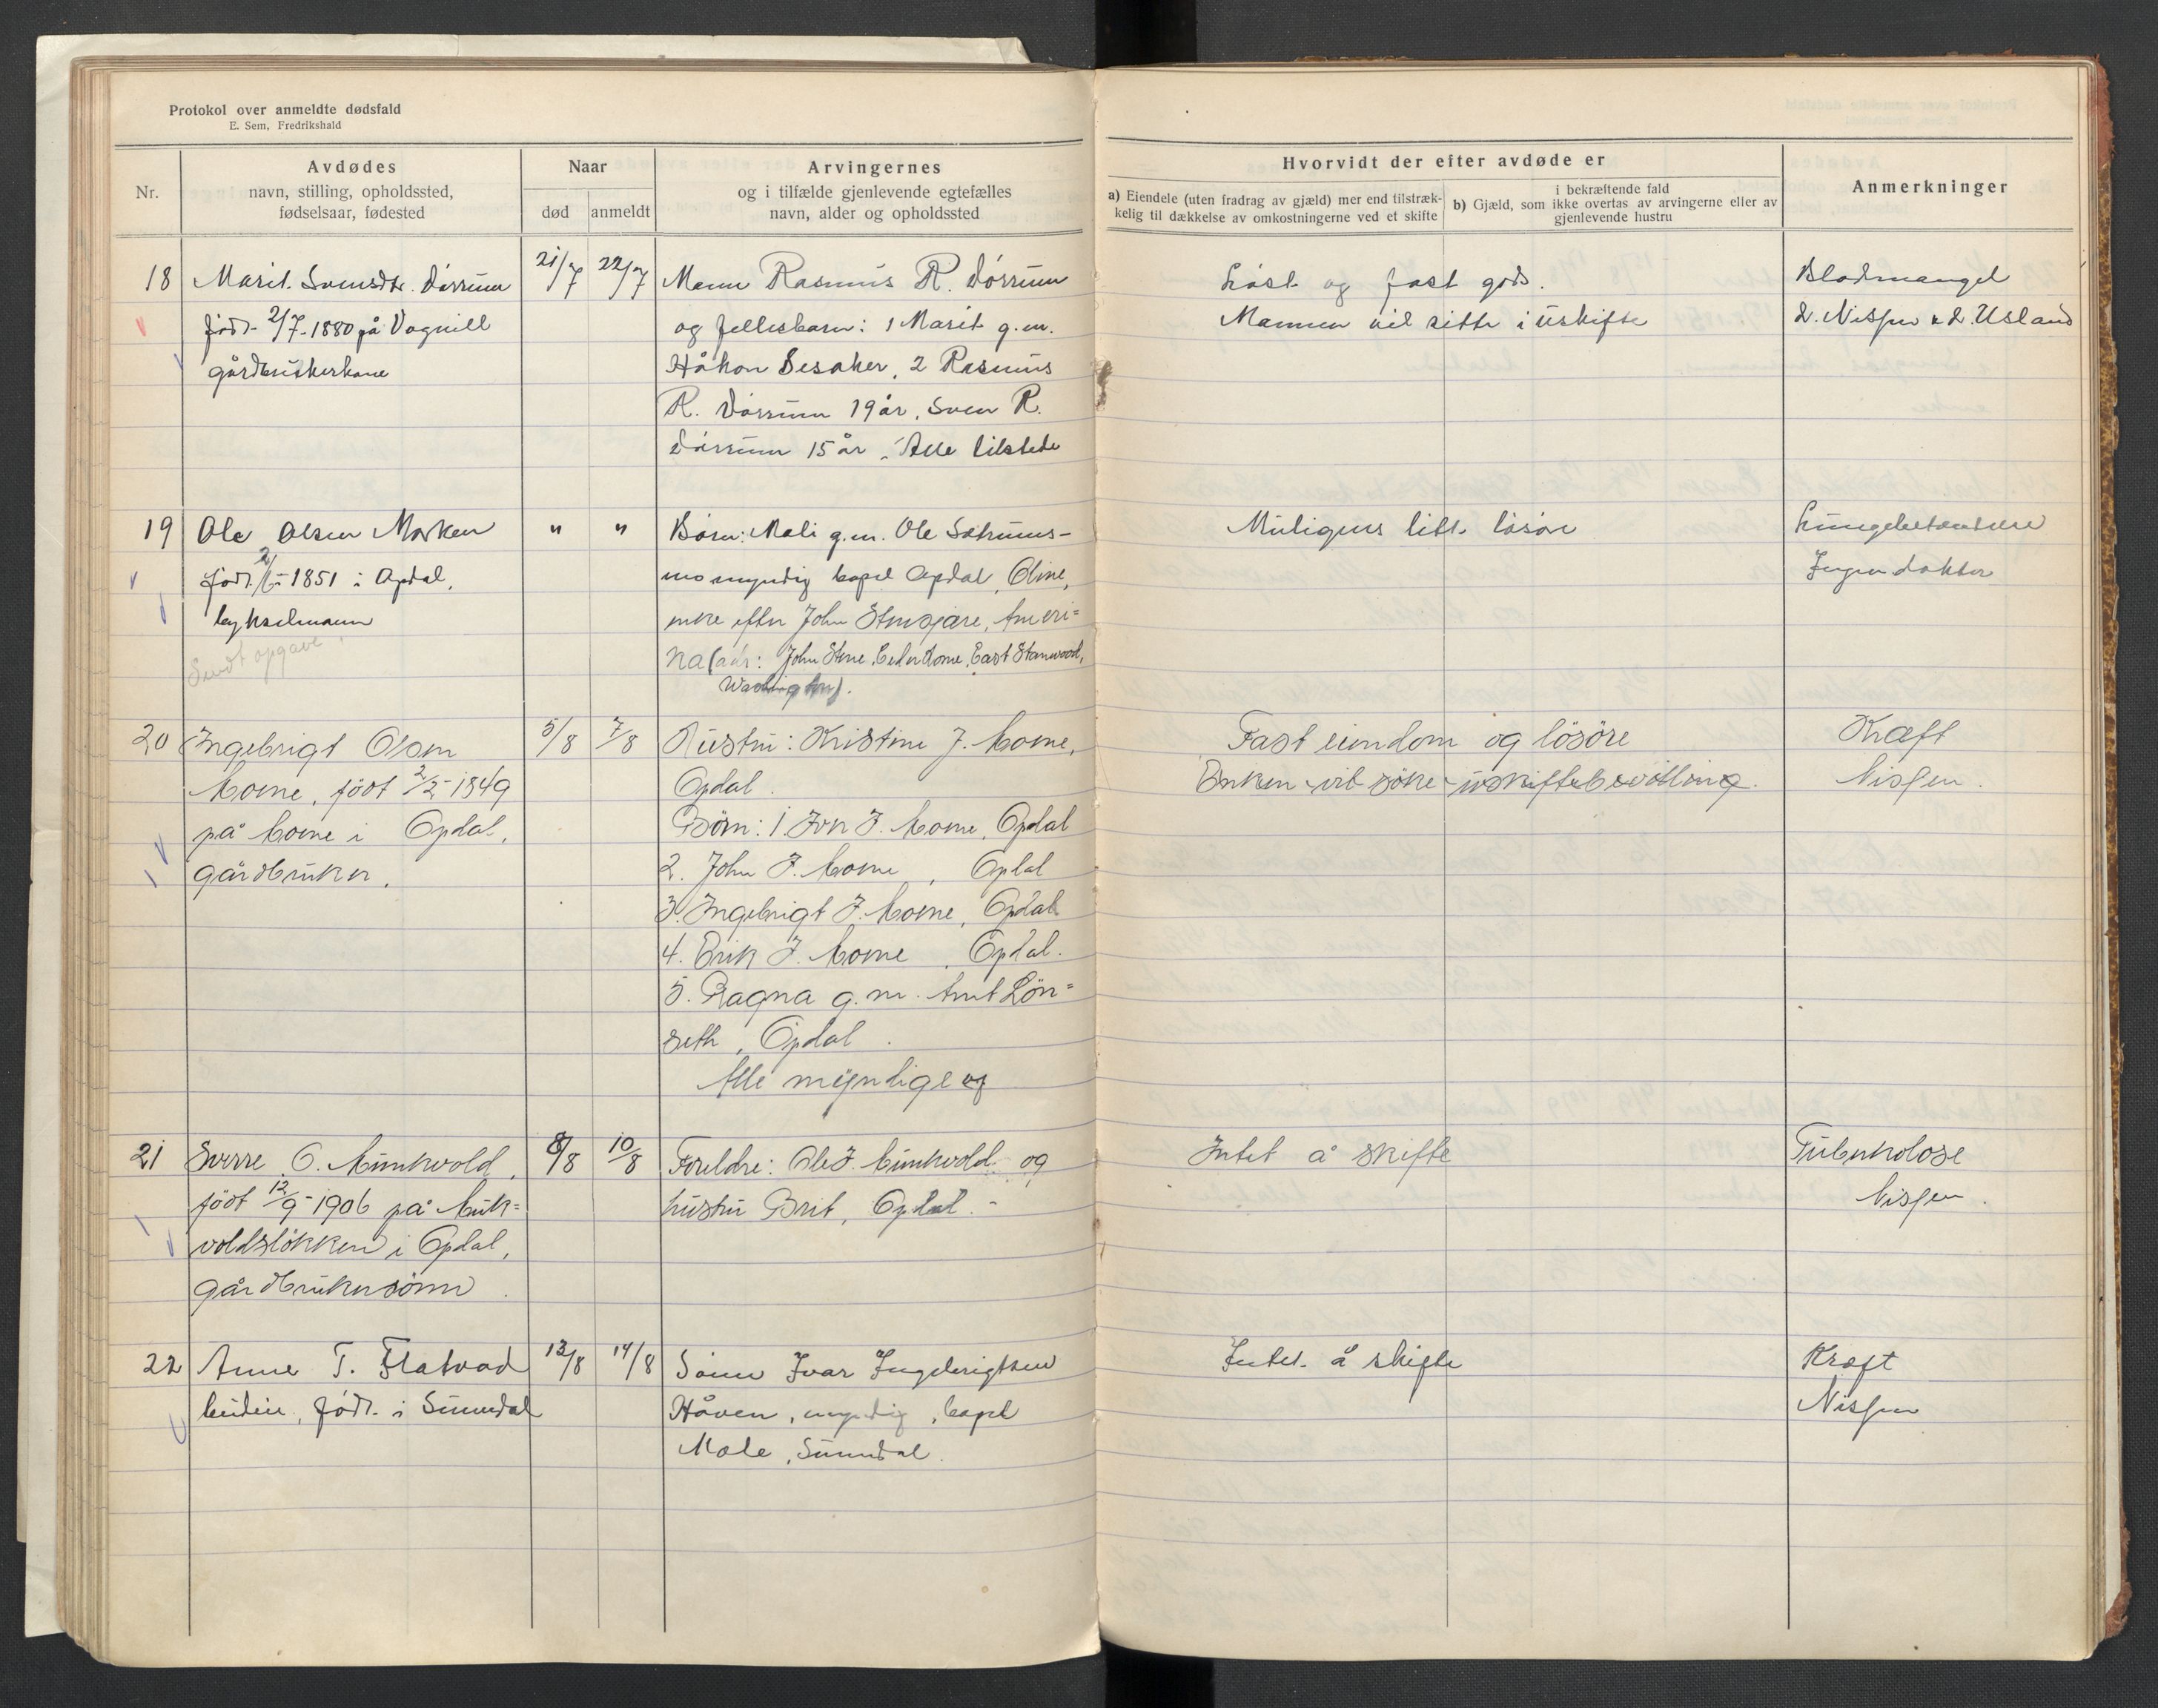 Protokol over anmeldte dødsfald
E. Sem, Fredrikshald
Nr.
Avdødes
navn, stilling, opholdssted,
fødselsaar, fødested
Naar
død
anmeldt
Arvingernes
og i tilfælde gjenlevende egtefælles
navn, alder og opholdssted
Hvorvidt der efter avdøde er
a) Eiendele (uten fradrag av gjæld) mer end tilstræk-
kelig til dækkelse av omkostningerne ved et skifte
i bekræftende fald
b) Gjæld, som ikke overtas av arvingerne eller av
gjenlevende hustru
Anmerkninger
18
Marit Svensdtr. Dørrum
født 2/7-1880 på Vognill
gårdbrukerkone
21/7
22/7
Mann Rasmus R. Dørrum
og fellesbarn: 1 Marit g.m.
Håkon Sesaker, 2 Rasmus
R. Dørrum 19 år, Sven R.
Dørrum 15 år. Alle tilstede
Løst og fast gods.
Mannen vil sitte i uskifte
Blodmangel
d. Nissen & d. Usland
19
Ole Olsen Morken
født 2/6-1851 i Opdal,
bygselmann
Sendt opgave
"
"
Barn: Mali g.m. Ole Sætrums-
mo myndig bopel Opdal, Oline,
enke efter John Stensjare, Ameri=
ka (adr: John Stene, Cedarhome, East Stanwood,
Washington).
Muligens litt løsøre
Lungebetendelse
Ingen doktor
20
Ingebrigt Olsen
Moene, født 2/2-1849
på Moene i Opdal,
gårdbruker.
5/8
7/8
Hustru: Kristine J. Moene,
Opdal.
Børn: 1. Ivr J. Moene, Opdal
2. John J. Moene, Opdal
3. Ingebrigt J. Moene, Opdal
4. Erik J. Moene, Opdal.
5. Ragna g.m. Arnt Løn=
seth, Opdal.
Alle myndige og
Fast eiendom og løsøre
Enken vil søke uskiftebevilling.
Kræft
Nissen.
21
Sverre O. Munkvold,
født 12/9-1906 på Munk=
voldsløkken i Opdal,
gårdbrukersønn.
8/8
10/8
Foreldre: Ole J. Munkvold og
hustru Brit, Opdal.-
Intet å skifte
Tuberkolose
Nissen.
22
Anne T. Flatvad
budeie, født i Sunndal
12/8
14/8
Sønn Ivar Ingebrigtsen
Håven, myndig, bopel
Male, Sunndal.
Intet å skifte
Kræft
Nissen